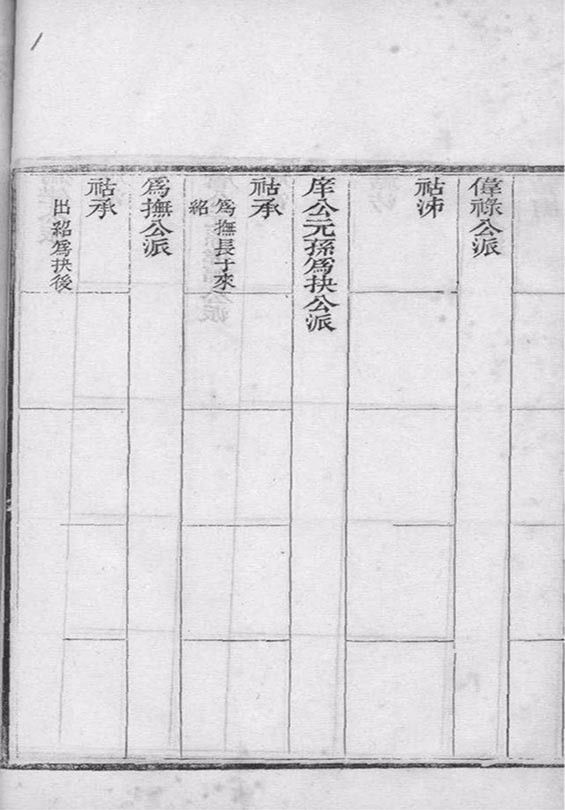 偉祿公派
祜涑
庠公元孫爲抉公派
祜承
爲撫長子來
紹
爲撫公派
祜承
出紹爲抉後